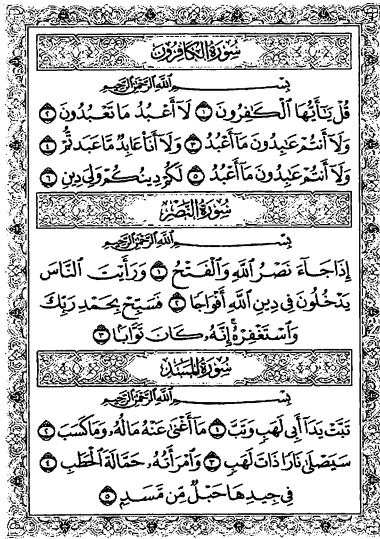 سُورَةُ الكَافِرُونَ
بِسْمِ اللَّهِ الرَّحْمَٰنِ الرَّحِيمِ
قُلْ يَٰٓأَيُّهَا ٱلْكَٰفِرُونَ ١ لَآ أَعْبُدُ مَا تَعْبُدُونَ ٢
وَلَآ أَنتُمْ عَٰبِدُونَ مَآ أَعْبُدُ ٣ وَلَآ أَنَا۠ عَابِدٌ مَّا عَبَدتُّمْ ٤
وَلَآ أَنتُمْ عَٰبِدُونَ مَآ أَعْبُدُ ٥ لَكُمْ دِينُكُمْ وَلِيَ دِينِ ٦
سُورَةُ النَّصْرِ
بِسْمِ اللَّهِ الرَّحْمَٰنِ الرَّحِيمِ
إِذَا جَآءَ نَصْرُ ٱللَّهِ وَٱلْفَتْحُ ١ وَرَأَيْتَ ٱلنَّاسَ
يَدْخُلُونَ فِى دِينِ ٱللَّهِ أَفْوَاجًا ٢ فَسَبِّحْ بِحَمْدِ رَبِّكَ
وَٱسْتَغْفِرْهُ ۚ إِنَّهُۥ كَانَ تَوَّابًۢا ٣
سُورَةُ المَسَدِ
بِسْمِ اللَّهِ الرَّحْمَٰنِ الرَّحِيمِ
تَبَّتْ يَدَآ أَبِى لَهَبٍ وَتَبَّ ١ مَآ أَغْنَىٰ عَنْهُ مَالُهُۥ وَمَا كَسَبَ ٢
سَيَصْلَىٰ نَارًا ذَاتَ لَهَبٍ ٣ وَٱمْرَأَتُهُۥ حَمَّالَةَ ٱلْحَطَبِ ٤
فِى جِيدِهَا حَبْلٌ مِّن مَّسَدٍۭ ٥